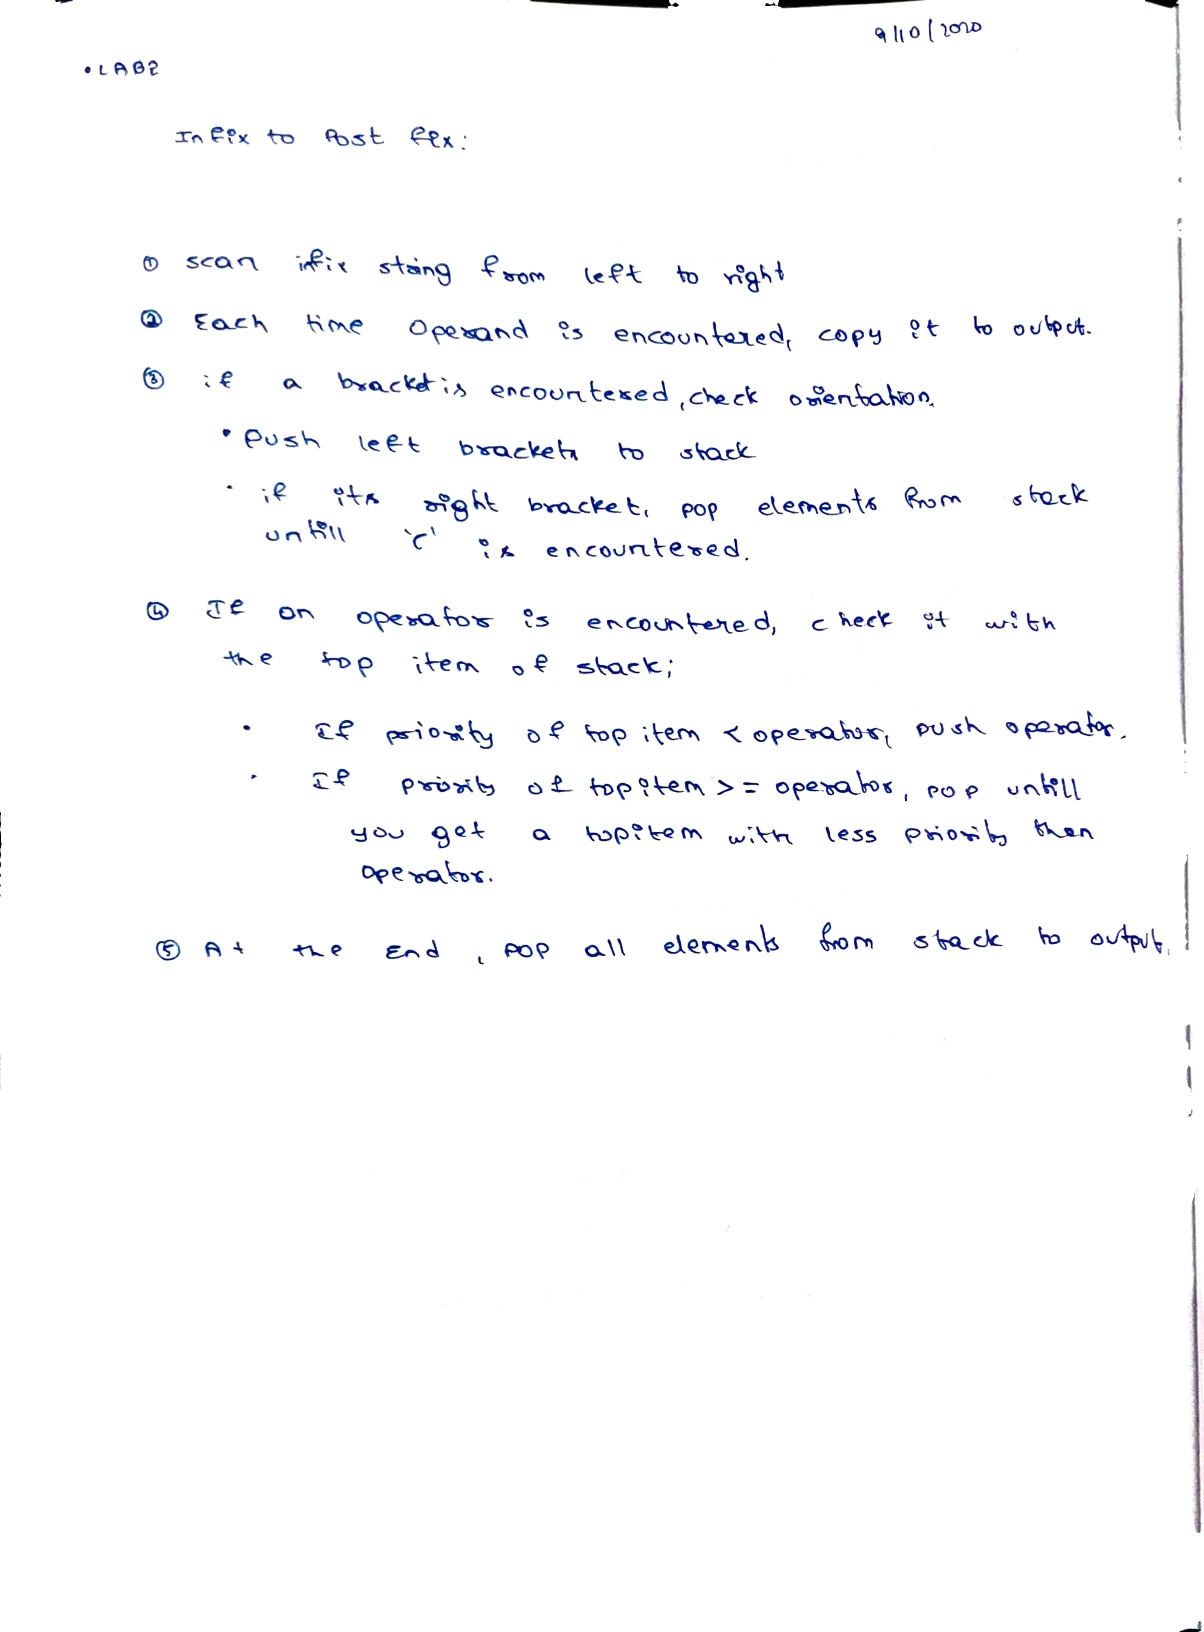 9/10/2020
• LAB2
Infix to Post fix:
① scan ifix string from left to right
② Each time Operand is encountered, copy it to output.
③ if a bracket is encountered, check orientation.
• Push left brackets to stack
• if its right bracket, pop elements from stack
untill '(' is encountered.
④ If an operator is encountered, check it with
the top item of stack;
• If priority of top item < operator, push operator.
• If priority of top item >= operator, pop untill
you get a top item with less priority than
operator.
⑤ At the End, pop all elements from stack to output.